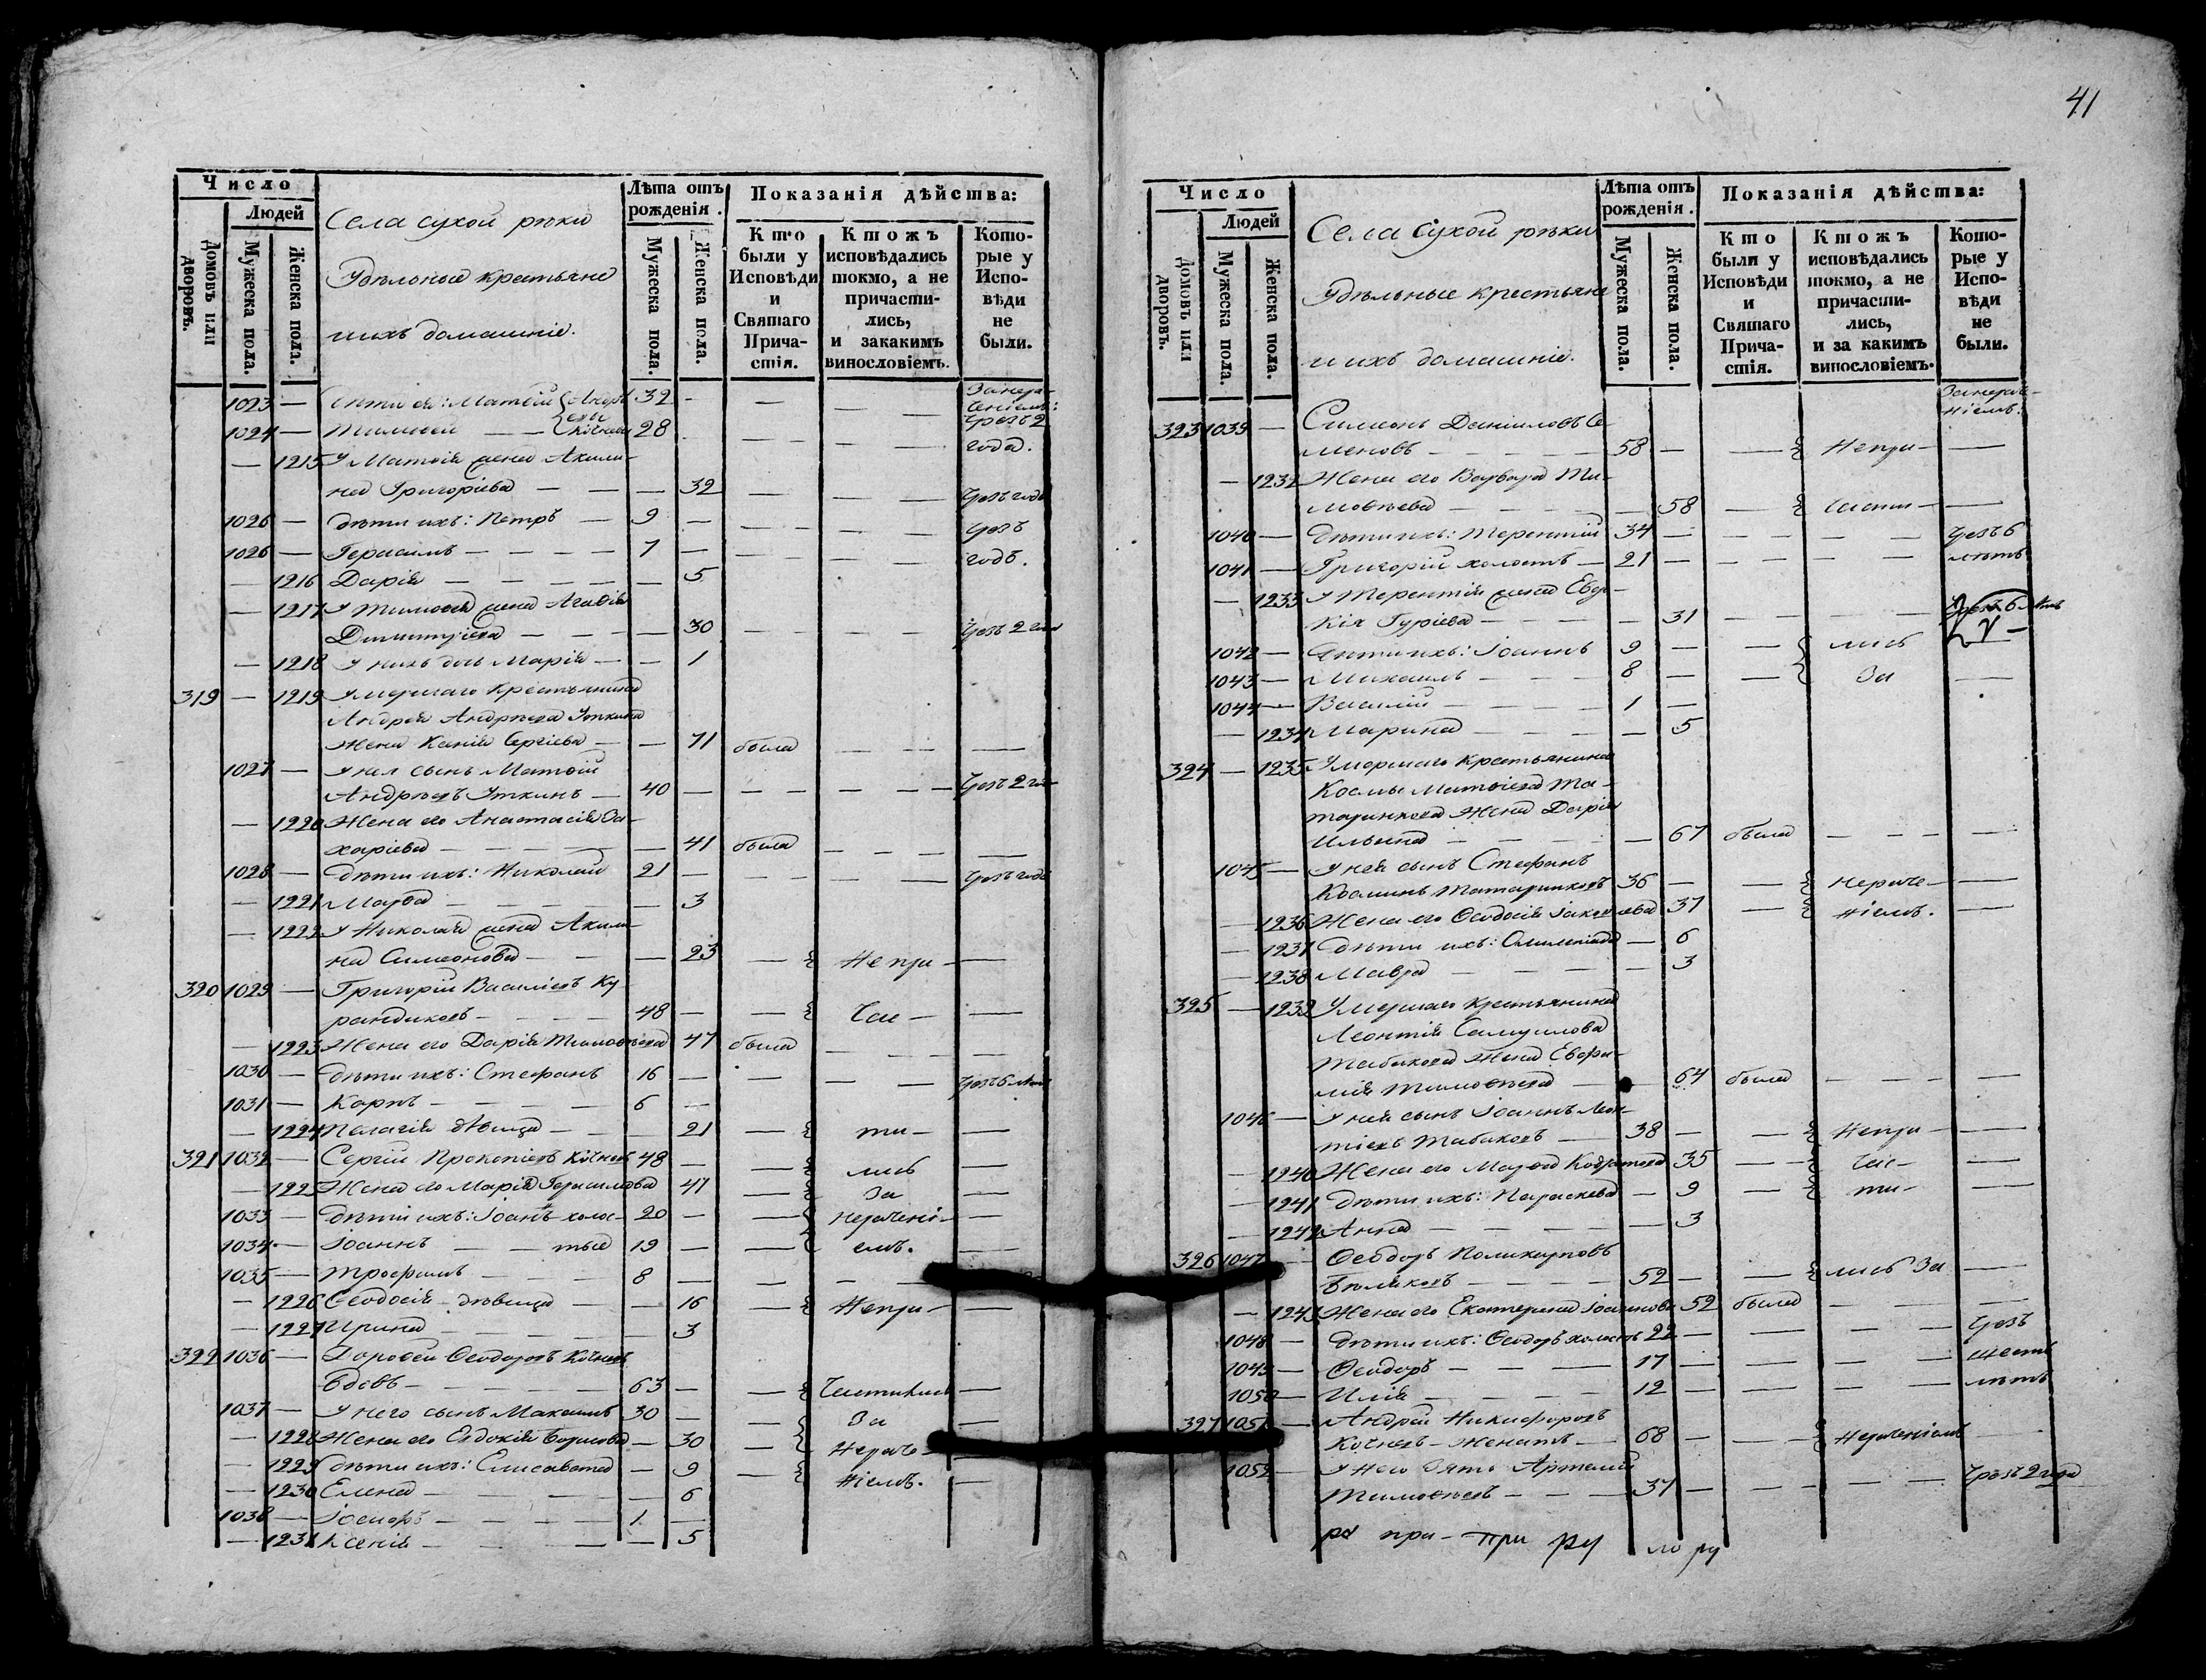 Число
Людей
Домовъ или дворовъ.
Мужеска пола.
Женска пола.
Села сухой рѣки
Удѣльные крестьяне
и ихъ домашніе.
Лѣта отъ рожденія.
Мужеска пола.
Женска пола.
Показанія дѣйства:
Кто были у Исповѣди и Святаго Причастія.
Ктожъ исповѣдались токмо, а не причастились, и закакимъ винословіемъ.
Которые у Исповѣди не были.
1023 — Матѳій 32 — — —
1024 — Тимоѳей — 28 — — — Чрезъ 2 года.
— 1215 У Матѳія жена Акили-
на Григоріева — — — 32 — — — Чрезъ годъ
1026 — дѣти ихъ: Петръ — 9 — — — — Чрезъ
1026 — Герасимъ — — — — 7 — — — годъ.
— 1216 Дарія — — — — — 5
— 1217 У Тимоѳея жена Агаѳія
Димитріева — — — 30 — — — Чрезъ 2 года
— 1218 У нихъ дочь Марія — — 1
319 — 1219 Умершаго крестьянина
Андрея Андрѣева Уткина
жена Ксенія Сергіева — — 71 была — — —
1027 — У нея сынъ Матѳій
Андрѣевъ Уткинъ — 40 — — — — Чрезъ 2 го-
— 1220 Жена его Анастасія За-
харіева — — — — — 41 была — — —
1028 — дѣти ихъ: Николай 21 — — — — Чрезъ годъ
— 1221 Марѳа — — — — 3
— 1222 У Николая жена Акили-
на Симеонова — — — 23 — Непри- —
320 1029 — Григорій Василіевъ Ку-
рандиковъ — — — 48 — — час- —
— 1223 Жена его Дарія Тимоѳѣева 47 была — — —
1030 — дѣти ихъ: Стефанъ 16 — — — — Чрезъ 6 лѣтъ
1031 — Карпъ — — — — 6 —
— 1224 Пелагія дѣвица — — 21 — ти- —
321 1032 — Сергій Прокопіевъ Кочневъ 48 — — лись —
— 1225 Жена его Марія Герасимова 47 — За —
1033 — дѣти ихъ: Іоаннъ холос- 20 — — нерачені- —
1034 — Іоаннъ — — тые 19 — — емъ. —
1035 — Трофимъ — — — 8 — — —
— 1226 Ѳеодосія дѣвица — — 16 — Непри- —
— 1227 Ирина — — — — 3
322 1036 — Дороѳей Ѳеодоровъ Кочневъ
вдовъ — — — — 63 — — частились —
1037 — У него сынъ Максимъ 30 — — За —
— 1228 Жена его Евдокія Борисова — 30 — Нераче- —
— 1229 дѣти ихъ: Елисавета — 9 — ніемъ. —
— 1230 Елена — — — — 6
1038 — Іосифъ — — — — 1. —
— 1231 Ксенія — — — — 5
41
Число
Людей
Домовъ или дворовъ.
Мужеска пола.
Женска пола.
Села сухой рѣки
Удѣльные крестьяне
и ихъ домашніе.
Лѣта отъ рожденія.
Мужеска пола.
Женска пола.
Показанія дѣйства:
Кто были у Исповѣди и Святаго Причастія.
Ктожъ исповѣдались токмо, а не причастились, и за какимъ винословіемъ.
Которые у Исповѣди не были.
Занераче-
ніемъ:
323 1039 — Симеонъ Даніиловъ Се-
меновъ — — — — 58 — — Непри- —
— 1232 Жена его Варвара Ти-
моѳѣева — — — — 58 — части- —
1040 — Дѣти ихъ: Терентій 34 — — — — Чрезъ 6
1041 — Григорій холостъ — 21 — — — — лѣтъ
— 1233 У Терентія жена Евдо-
кія Гуріева — — — 31 — — — Чрезъ 6 лѣтъ
1042 — Дѣти ихъ: Іоаннъ 9 — — лись —
1043 — Михаилъ — — — 8 — — За —
1044 — Василій — — — — 1 —
— 1234 Марина — — — — 5
324 — 1235 Умершаго крестьянина
Космы Матѳіева Та-
таринкова жена Дарія
Ильина — — — — 67 была — — —
1045 — У нея сынъ Стефанъ
Косминъ Татаринковъ 36 — — нераче- —
— 1236 Жена его Ѳеодосія Іаковлева 37 — ніемъ. —
— 1237 Дѣти ихъ: Олимпіада — 6
— 1238 Мавра — — — — 3
325 — 1239 Умершаго крестьянина
Леонтія Самуилова
Табакова жена Евфи-
мія Тимоѳѣева — — 64 была — — —
1046 — У нея сынъ Іоаннъ Леон-
тіевъ Табаковъ — 38 — — Непри- —
— 1240 Жена его Марѳа Кодратова 35 — час- —
— 1241 Дѣти ихъ: Параскева — 9 — ти- —
— 1242 Анна — — — — 3
326 1047 — Ѳеодоръ Поликарповъ
Бѣляковъ — — — — 52 — — лись За —
— 1243 Жена его Екатерина Іоаннова 52 была — — —
1048 — Дѣти ихъ: Ѳеодоръ холостъ 22 — — — — Чрезъ
1049 — Ѳеодоръ — — — 17 — — — — шесть
1050 — Илія — — — — 12 — — — — лѣтъ
327 1051 — Андрей Никифоровъ
Кочневъ — женатъ — 68 — — Нераченіемъ —
1052 — У него зять Артемій
Тимоѳѣевъ — — — 37 — — — — Чрезъ 2 года
ра при — при ру ло ру